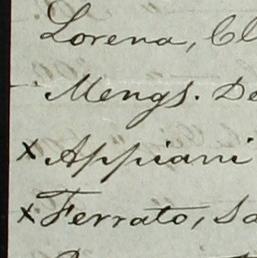 Lorena, Cl
Mengs. De
x Appiani
x Ferrato, Sa